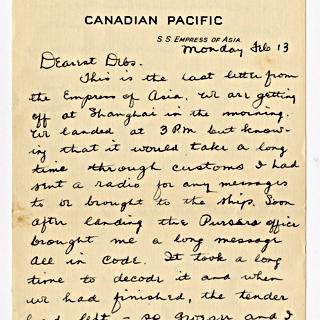 CANADIAN PACIFIC
S.S. EMPRESS OF ASIA
Monday Feb 13
Dearest Debs.
This is the last letter from
the Empress of Asia. We are getting
off at Shanghai in the morning.
We landed at 3 P.M. but know-
ing that it would take a long
time through customs I had
sent a radio for any messages
to be brought to the ship. Soon
after landing the Pursers office
brought me a long message
all in code. It took a long
time to decode it and when
we had finished, the tender
had left - so and I